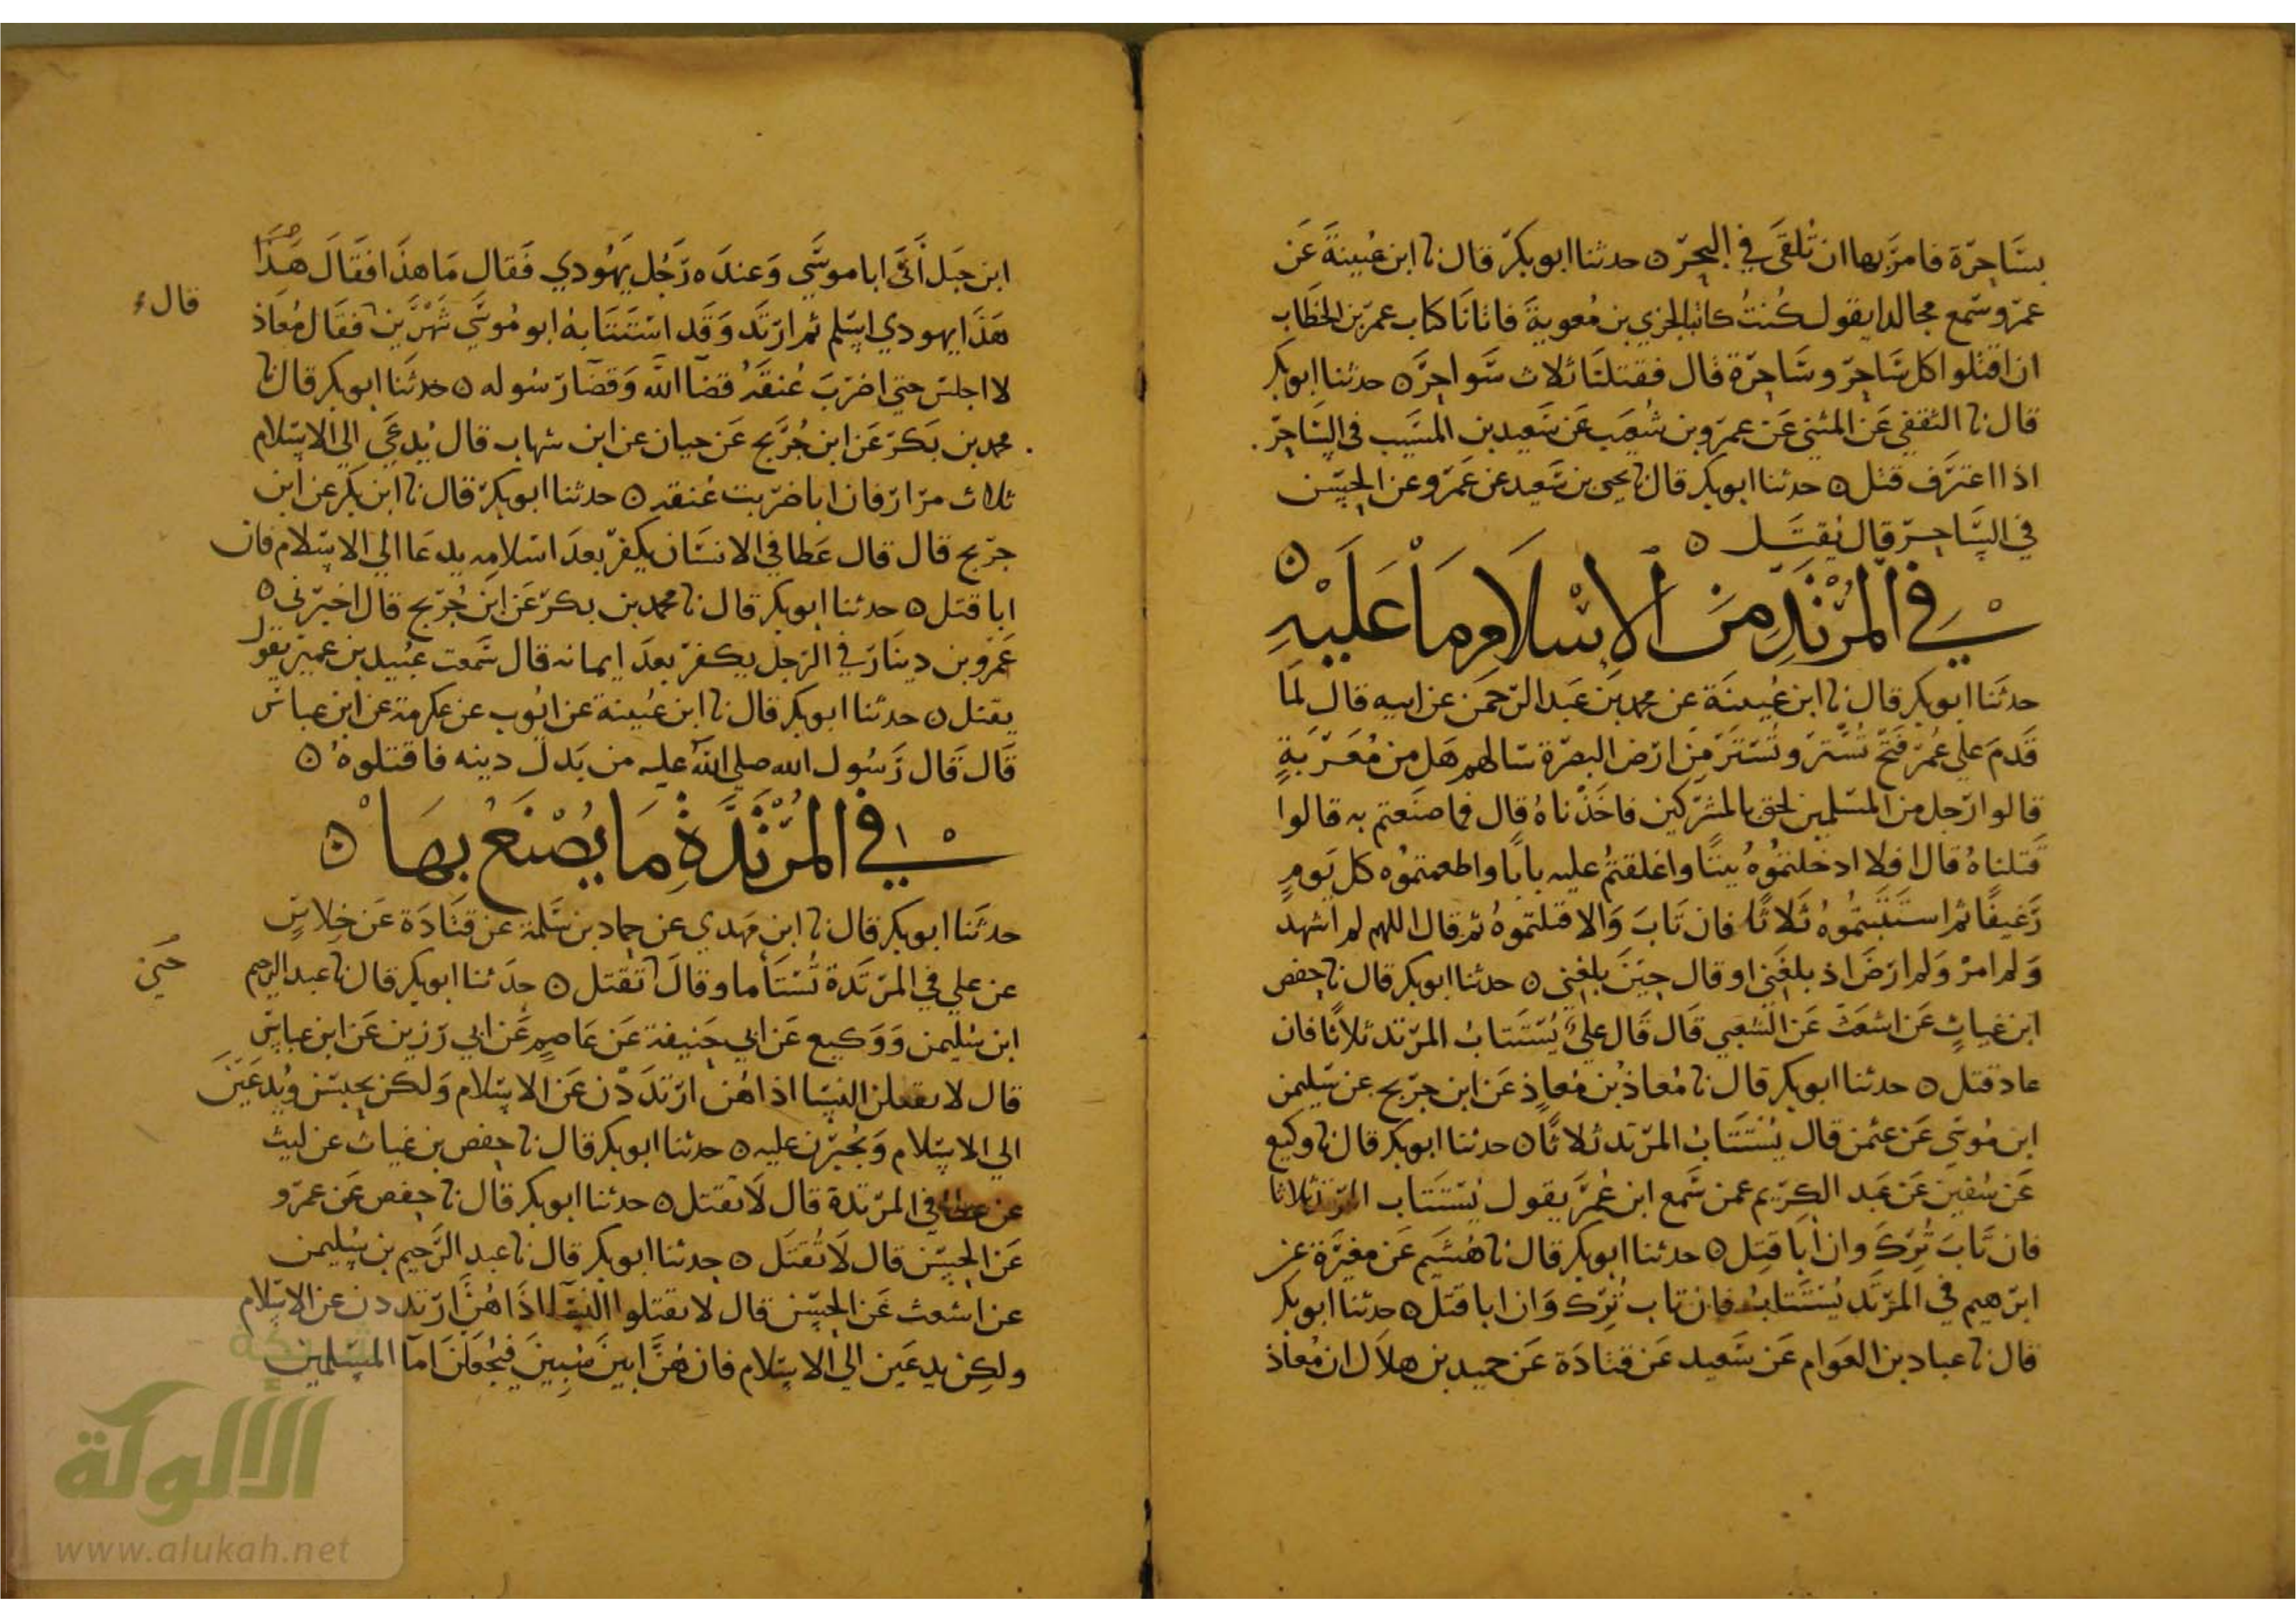 بساحرة فامر بها ان تلقى في البحر ه حدثنا ابو بكر قال نا ابن عيينة عن
عمرو سمع مجالدا يقول كنت كاتبا لجزي بن معوية فاتانا كتاب عمر بن الخطاب
ان اقتلوا كل ساحر وساحرة قال فقتلنا ثلاث سواحر ه حدثنا ابو بكر
قال نا الثقفي عن المثنى عن عمرو بن شعيب عن سعيد بن المسيب في الساحر
اذا اعترف قتل ه حدثنا ابو بكر قال نا يحيى بن سعيد عن عمرو عن الحسن
في الساحر قال يقتل ه
في المرتد من الاسلام ما عليه ه
حدثنا ابو بكر قال نا ابن عيينة عن محمد بن عبد الرحمن عن ابيه قال لما
قدم على عمر فتح تستر وتستر من ارض البصرة سالهم هل من مغربة
قالوا رجل من المسلمين لحق بالمشركين فاخذناه قال فما صنعتم به قالوا
قتلناه قال افلا ادخلتموه بيتا واغلقتم عليه بابا واطعمتموه كل يوم
رغيفا ثم استتبتموه ثلاثا فان تاب والا قتلتموه ثم قال اللهم لم اشهد
ولم امر ولم ارض اذ بلغني او قال حين بلغني ه حدثنا ابو بكر قال نا حفص
ابن غياث عن اشعث عن الشعبي قال قال علي يستتاب المرتد ثلاثا فان
عاد قتل ه حدثنا ابو بكر قال نا معاذ بن معاذ عن ابن جريج عن سليمن
ابن موسى عن عثمن قال يستتاب المرتد ثلاثا ه حدثنا ابو بكر قال نا وكيع
عن سفين عن عبد الكريم عمن سمع ابن عمر يقول يستتاب المرتد ثلاثا
فان تاب ترك وان ابا قتل ه حدثنا ابو بكر قال نا هشيم عن مغيرة عن
ابرهيم في المرتد يستتاب فان تاب ترك وان ابا قتل ه حدثنا ابو بكر
قال نا عباد بن العوام عن سعيد عن قتادة عن حميد بن هلال ان معاذ
ابن جبل اتى ابا موسى وعنده رجل يهودي فقال ما هذا فقال هذا
قال
هذا يهودي اسلم ثم ارتد وقد استتابه ابو موسى شهرين فقال معاذ
لا اجلس حتى اضرب عنقه قضا الله وقضا رسوله ه حدثنا ابو بكر قال نا
محمد بن بكر عن ابن جريج عن حيان عن ابن شهاب قال يدعى الى الاسلام
ثلاث مرار فان ابا ضربت عنقه ه حدثنا ابو بكر قال نا ابن بكر عن ابن
جريج قال قال عطا في الانسان يكفر بعد اسلامه يدعا الى الاسلام فان
ابا قتل ه حدثنا ابو بكر قال نا محمد بن بكر عن ابن جريج قال اخبرني
عمرو بن دينار في الرجل يكفر بعد ايمانه قال سمعت عبيد بن عمير يقول
يقتل ه حدثنا ابو بكر قال نا ابن عيينة عن ايوب عن عكرمة عن ابن عباس
قال قال رسول الله صلى الله عليه من بدل دينه فاقتلوه ه
في المرتدة ما يصنع بها ه
حدثنا ابو بكر قال نا ابن مهدي عن حماد بن سلمة عن قتادة عن خلاس
عن علي في المرتدة تستاما وقال تقتل ه حدثنا ابو بكر قال نا عبد الرحيم
ابن سليمن ووكيع عن ابي حنيفة عن عاصم عن ابي رزين عن ابن عباس
قال لا يقتلن النسا اذا هن ارتددن عن الاسلام ولكن يحبسن ويدعين
الى الاسلام ويجبرن عليه ه حدثنا ابو بكر قال نا حفص بن غياث عن ليث
عن عطا في المرتدة قال لا تقتل ه حدثنا ابو بكر قال نا حفص عن عمرو
عن الحسن قال لا تقتل ه حدثنا ابو بكر قال نا عبد الرحيم بن سليمن
عن اشعث عن الحسن قال لا تقتلوا النسا اذا هن ارتددن عن الاسلام
ولكن يدعين الى الاسلام فان هن ابين سبين فيجعلن امآ المسلمين
شبكة
الألوكة
www.alukah.net